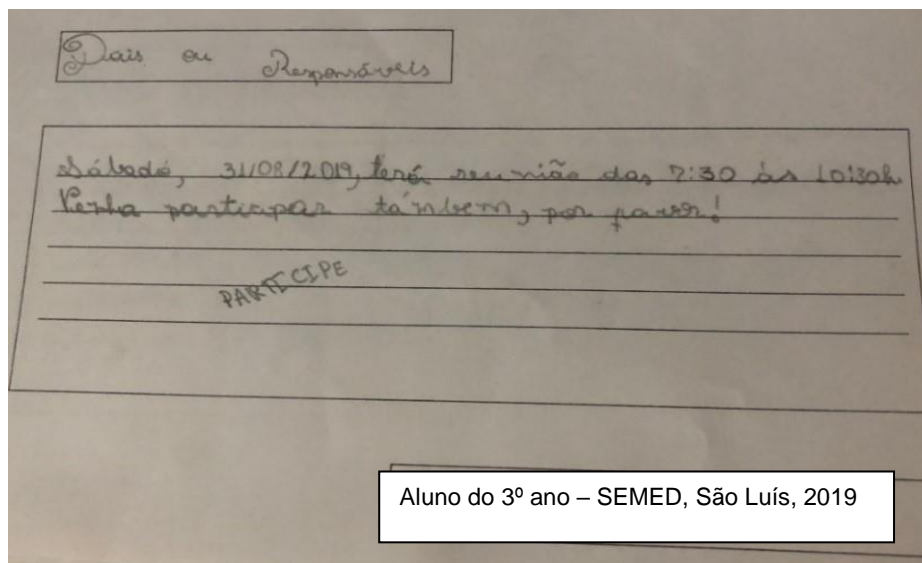 Pais ou Responsáveis
Sábado, 31/08/2019, terá reunião das 7:30 às 10:30h
Venha participar támbem, por favor!
PARTICIPE
Aluno do 3º ano – SEMED, São Luís, 2019